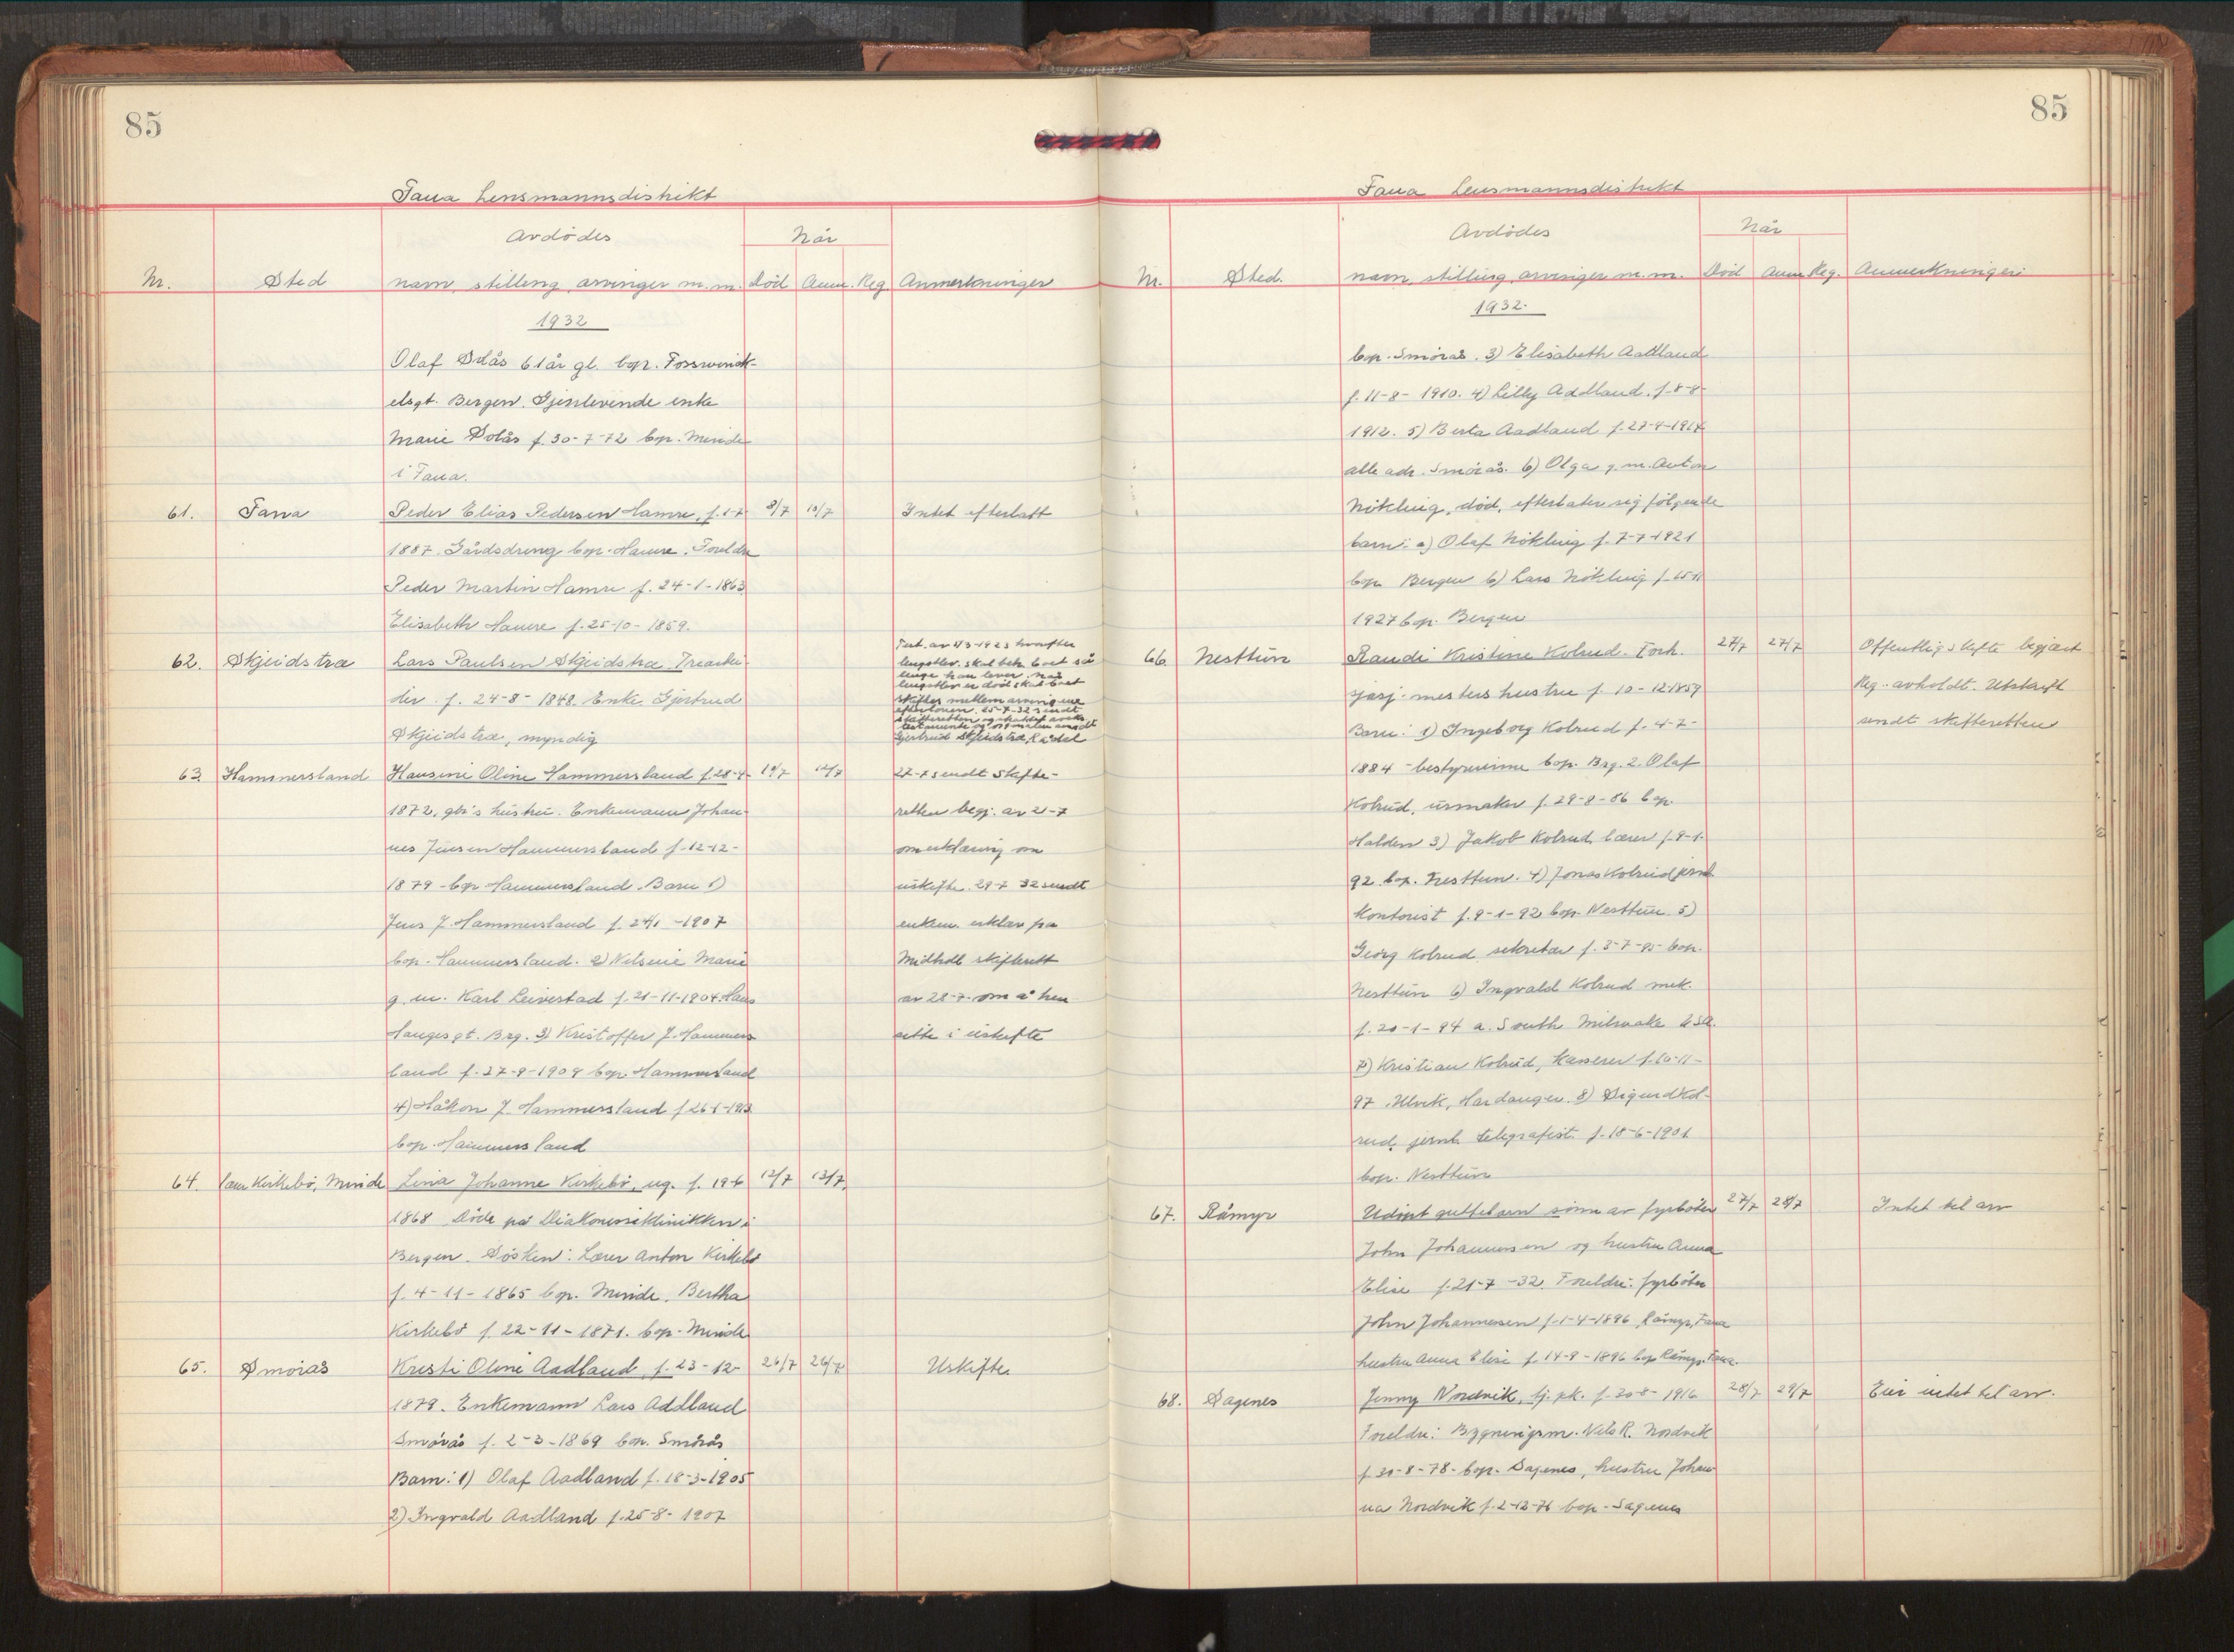 85
Fana Lensmannsdistrikt
Avdödes
Når
Nr. Sted navn stilling arvinger m.m. död Anm. Reg Anmerkninger
1932
Olaf Solås 61 år gl. bop. Fosswinck-
elsgt. Bergen. Gjenlevende enke
Marie Solås f. 30-7-72 bop. Minde
i Fana.
61. Fana Peder Elias Pedersen Hamre, f. 1-7 8/7 13/7 Intet efterlatt
1887. Gårdsdreng bop. Hamre. Foreldre
Peder Martin Hamre f. 24-1-1863
Elisabeth Hamre f. 25-10-1859.
62. Skjeidstræ Lars Paulsen Skjeidstræ. Trearbei-
der f. 24-8-1848. Enke Gjertrud
Skjeidstræ, myndig
lengstlev. skal beh. boet så
lenge han lever, når
lengstlev er död skal boet
skiftes mellem arvingene
Gjertrud Skjeidstræ, Rådal
63. Hammersland Hansine Oline Hammersland f. 28-4- 10/7 12/7 27-7 sendt skifte-
1872, gbr's hustru. Enkemann Johan- retten begj. av 21-7
nes Jensen Hammersland f. 12-12- om erklæring om
1879 - bop Hammersland. Barn 1) uskifte. 29-7 32 sendt
Jens J. Hammersland f. 24/1 -1907 enkem. erklær på
bop. Hammersland. 2) Nelsine Marie Midhdl skifterett
g. m. Karl Leivestad f. 21-11-1904 Hans av 28-7. om å hen
Hauges gt. Brg. 3) Kristoffer J. Hammers sitte i uskifte
land f. 27-9-1909 bop. Hammersland
4) Håkon J. Hammersland f. 26-1-1913
bop. Hammersland
64. Kirkebö, Minde Lina Johanne Kirkebö, ug. f. 19-6 12/7 13/7.
1868 Döde på Diakonisseklinikken i
Bergen. Sösken: Lærer Anton Kirkebö
f. 4-11-1865 bop. Minde. Bertha
Kirkebö f. 22-11-1871. bop. Minde
65. Smörås Kristi Oline Aadland, f. 23-12- 26/7 26/7 Uskifte.
1879. Enkemann Lars Addland
Smörås f. 2-3-1869 bop. Smörås
Barn: 1) Olaf Aadland f. 18-3-1905
2) Ingvald Aadland f. 25-8-1907
85
Fana Lensmannsdistrikt
Avdödes
Når
Nr. Sted. navn stilling arvinger m.m. Död Anm Reg. Anmerkninger
1932.
bop. Smörås. 3) Elisabeth Aadland
f. 11-8-1910. 4) Lilly Addland. f. 8-8-
1912. 5) Berta Aadland f. 27-4-1914
alle adr. Smörås. 6) Olga g. m. Anton
Nökling, död, efterlater sig fölgende
barn: a) Olaf Nökling f. 7-7-1921
bop Bergen b) Lars Nökling f. 15-11
1927 bop. Bergen
66. Nesttun Randi Kristine Kolrud. Forh. 27/7 27/7 Offentlig skifte begjært
mesters hustru f. 10-12-1859 Reg. avholdt. Utskrift
Barn: 1) Ingeborg Kolrud f. 4-7- sendt skifteretten
1884 - bestyrerinne bop. Brg. 2. Olaf
Kolrud, urmaker f. 29-8-86 bop.
Halden 3) Jakob Kolrud, lærer f. 9-1-
92 bop. Nesttun. 4) Jonas Kolrud jernb
kontorist f. 9-1-92 bop. Nesttun 5)
Georg Kolrud sekretær f. 3-7-95 bop.
Nesttun 6) Ingvald Kolrud mek.
f. 20-1-94 a. South Milwake USA.
7) Kristian Kolrud, kasserer f. 10-11-
97. Ulvik, Hardanger. 8) Sigurd Kol-
rud, jernb. telegrafist. f. 18-6-1901
bop. Nesttun
67. Råmyr Udöpt guttebarn sönn av fyrböter 27/7 28/7 Intet til arv
John Johannessen og hustru Anna
Elise f. 21-7-32. Foreldre: fyrböter
John Johannessen f. 1-4-1896 Råmyr, Fana
hustru Anna Elise f. 14-9-1896 bop Råmyr, Fana.
68. Sagenes Jenny Nordvik, tj. pk. f. 20-8-1916 28/7 29/7 Eier intet til arv.
Foreldre: Bygningsm. Nels R. Nordvik
f. 30-8-78. bop. Sagenes, hustru Johan
na Nordvik f. 2-12-76 bop. Sagenes